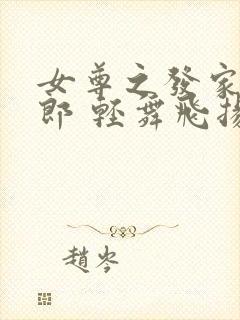 女尊之發家
郎 輕舞飛揚
趙岑